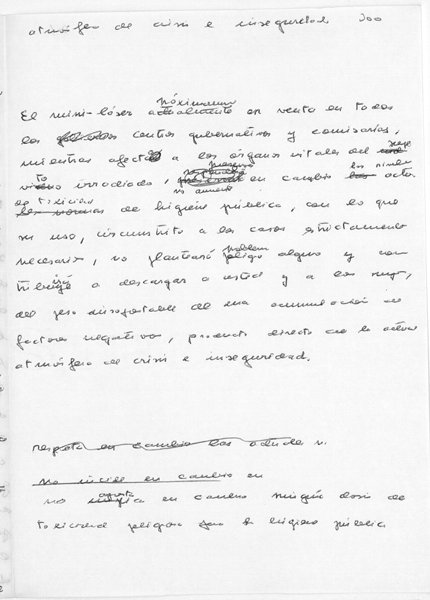 atmósfera de crisis e inseguridad
próximamente
El mini-láser actualmente en venta en todos
los centros gubernativos y comisarías,
mientras afecta a los órganos vitales del suje
to irradiado, en cambio los niveles
de toxicidad
no aumenta
de higiene pública, con lo que
su uso, circunscrito a los casos estrictamente
problema
necesarios, no planteará peligro alguno y con
tribuirá a descargar a usted y a los suyos
del peso insoportable de una acumulación de
factores negativos, producto directo de la actual
atmósfera de crisis e inseguridad.
respeta en cambio las
no incide en cambio en
no aporta en cambio ningún dosis de
toxicidad peligrosa para la higiene pública